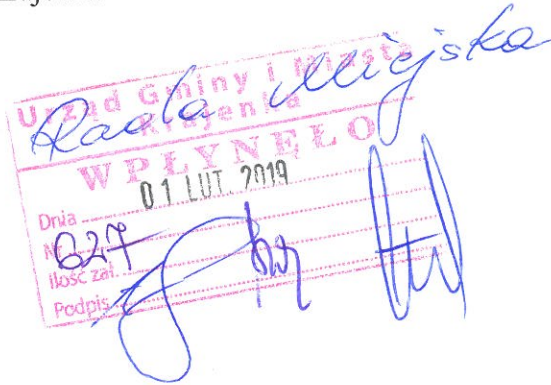 Rada Miejska
Urząd Gminy i Miasta
Krajenka
WPŁYNĘŁO
Dnia 01 LUT. 2019
Nr 627
Ilość zał.
Podpis